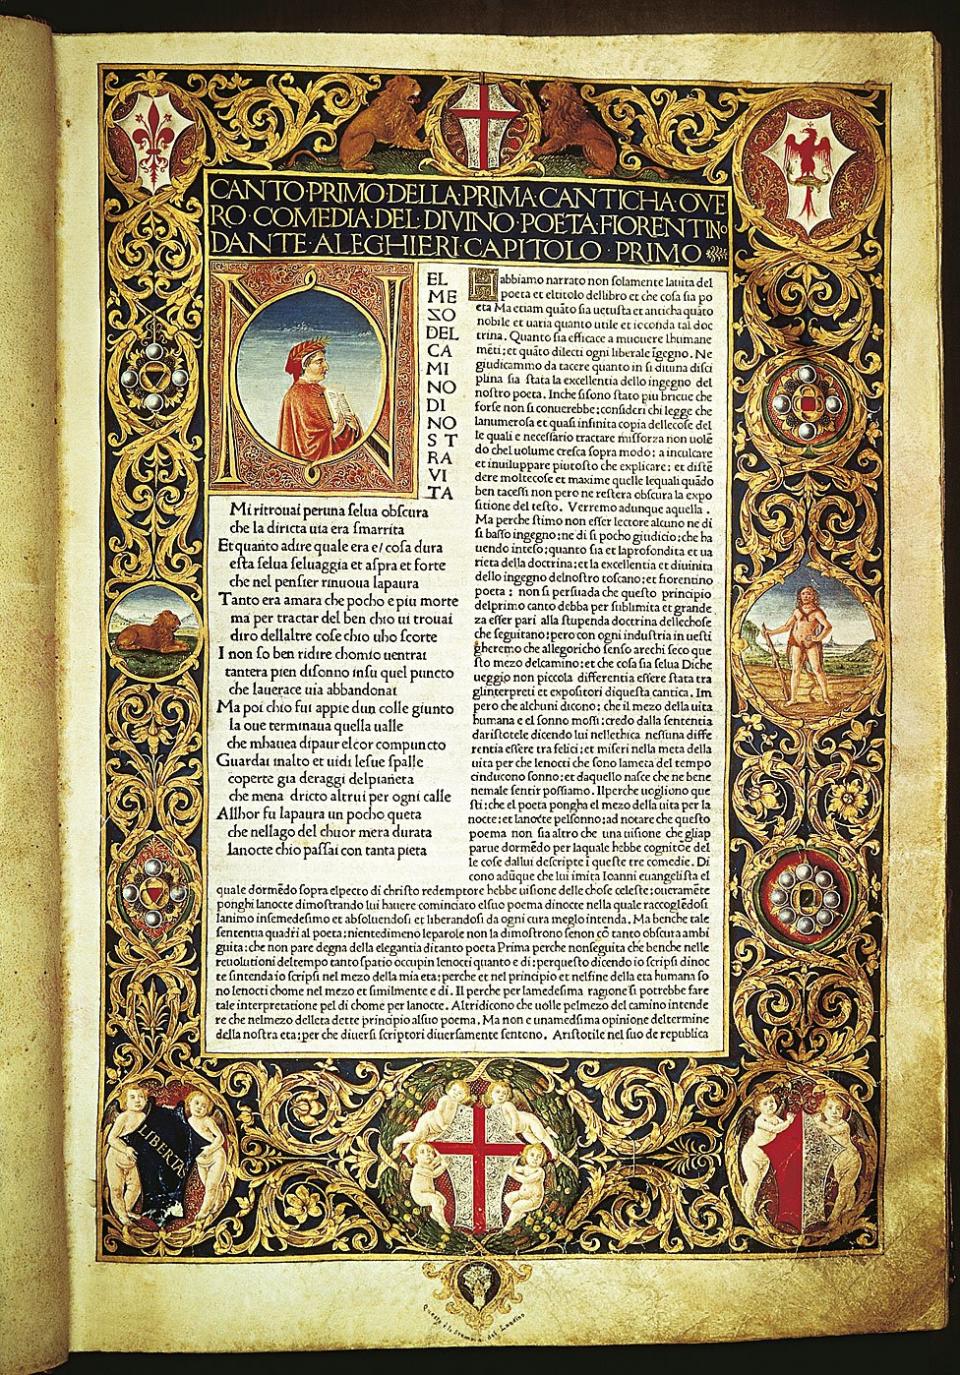 CANTO·PRIMO·DELLA·PRIMA CANTICHA OVE
RO·COMEDIA·DEL·DIVINO·POETA·FIORENTINO
DANTE·ALEGHIERI CAPITOLO·PRIMO
N
EL
ME
ZO
DEL
CA
MI
NO
DI
NO
S T
RA
VI
TA
Mi ritrouai peruna selua obscura
che la diricta uia era smarrita
Et quanto adire quale era e/ cosa dura
esta selua seluaggia et aspra et forte
che nel pensier rinuoua lapaura
Tanto era amara che pocho e piu morte
ma per tractar del ben chio ui trouai
diro dellaltre cose chio uho scorte
I non so ben ridire chomio uentrai
tantera pien disonno insu quel puncto
che lauerace uia abbandonai
Ma poi chio fui appie dun colle giunto
la oue terminaua quella ualle
che mhauea dipaur elcor compuncto
Guardai inalto et uidi lesue spalle
coperte gia deraggi delpianeta
che mena dricto altrui per ogni calle
Allhor fu lapaura un pocho queta
che nellago del chuor mera durata
lanocte chio passai con tanta pieta
Habbiamo narrato non solamente lauita del
poeta et eltitolo dellibro et che cosa sia po
eta Ma etiam quāto sia uetusta et anticha quāto
nobile et uaria quanto utile et ioconda tal doc
trina. Quanto sia efficace a muouere lhumane
mēti; et quāto dilecti ogni liberale īgegno. Ne
giudicammo da tacere quanto in si diuina disci
plina sia stata la excellentia dello ingegno del
nostro poeta. Inche sisono stato piu brieue che
forse non si conuerrebbe; consideri chi legge che
lanumerosa et quasi infinita copia dellecose del
le quali e necessario tractare misforza non uolē
do chel uolume cresca sopra modo; a inculcare
et inuiluppare piutosto che explicare; et distē
dere moltecose et maxime quelle lequali quādo
ben tacessi non pero ne restera obscura la expo
sitione del testo. Verremo adunque aquella.
Ma perche stimo non esser lectore alcuno ne di
si basso ingegno; ne di si pocho giudicio; che ha
uendo inteso; quanto sia et laprofondita et ua
rieta della doctrina; et la excellentia et diuinita
dello ingegno delnostro toscano; et fiorentino
poeta : non si persuada che questo principio
delprimo canto debba per sublimita et grande
za esser pari alla stupenda doctrina dellechose
che seguitano; pero con ogni industria in uesti
gheremo che allegoricho senso arechi seco que
sto mezo delcamino; et che cosa sia selua Diche
ueggio non piccola differentia essere stata tra
glinterpreti et expositori diquesta cantica. Im
pero che alchuni dicono; che il mezo della uita
humana e el sonno mossi; credo dalla sententia
daristotele dicendo lui nellethica nessuna diffe
rentia essere tra felici; et miseri nella meta della
uita per che lenocti che sono lameta del tempo
cinducono sonno; et daquello nasce che ne bene
nemale sentir possiamo. Ilperche uogliono que
sti; che el poeta pongha el mezo della uita per la
nocte; et lanocte pelsonno; ad notare che questo
poema non sia altro che una uisione che gliap
parue dormēdo per laquale hebbe cognitōe del
le cose dallui descripte i queste tre comedie. Di
cono adūque che lui imita Ioanni euangelista el
quale dormēdo sopra elpecto di christo redemptore hebbe uisione delle chose celeste; oueramēte
ponghi lanocte dimostrando lui hauere cominciato elsuo poema dinocte nella quale raccoglēdosi
lanimo insemedesimo et absoluendosi et liberandosi da ogni cura meglo intenda. Ma benche tale
sententia quadri al poeta; nientedimeno leparole non la dimostrono senon cō tanto obscura ambi
guita; che non pare degna della elegantia ditanto poeta Prima perche nonseguita che benche nelle
reuolutioni deltempo tanto spatio occupin lenocti quanto e di; perquesto dicendo io scripsi dinoc
te sintenda io scripsi nel mezo della mia eta; perche et nel principio et nelfine della eta humana so
no lenocti chome nel mezo et similmente e di. Il perche per lamedesima ragione si potrebbe fare
tale interpretatione pel di chome per lanocte. Altri dicono che uolle pelmezo del camino intende
re che nelmezo delleta dette principio alsuo poema. Ma non e unamedesima opinione deltermine
della nostra eta; per che diuersi scriptori diuersamente sentono. Aristotile nel suo de republica
LIBERTAS
Questa è lo stemma del Landino